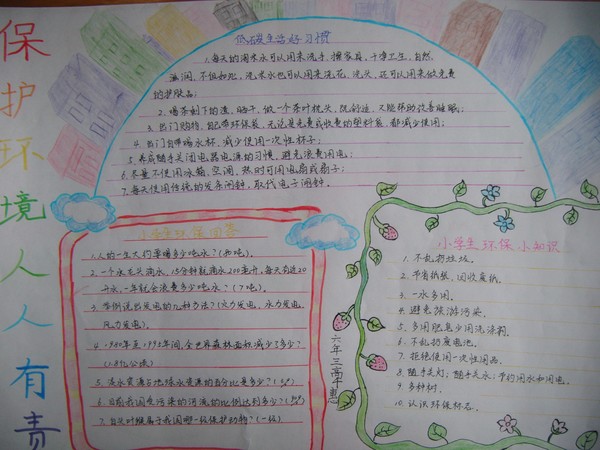 保护环境人人有责
低碳生活好习惯
1.每天的淘米水可以用来洗手,擦家具,干净卫生,自然
滋润,不但如此,洗米水也可以用来洗花,洗头,还可以用来做免费
的护肤品;
2.喝茶剩下的渣,晒干,做一个茶叶枕头,既舒适,又能帮助改善睡眠;
3.出门购物,自己带环保袋,无论是免费或收费的塑料袋,都减少使用;
4.出门自带喝水杯,减少使用一次性杯子;
5.养成随手关闭电器电源的习惯,避免浪费用电;
6.尽量不使用冰箱,空调,热时可用电扇或扇子;
7.每天使用传统的发条闹钟,取代电子闹钟。
小学生环保问答
1.人的一生大约要喝多少吨水?
2.一个水龙头滴水,15分钟就滴水200毫升,每天有近20
升水,一年就会浪费多少吨水?(7吨)。
3.举例说出发电的几种办法?(火力发电,水力发电,
风力发电)。
4.1980年至1990年间,全世界森林面积减少了多少?
5.淡水资源占地球水资源的百分比是多少?
6.目前我国受污染的河流的比例达到多少?
7.白头叶猴属于我国哪一级保护动物?(一级)
小学生环保小知识
1.不乱扔垃圾。
2.节省纸张,回收废纸。
3.一水多用。
4.避免旅游污染。
5.多用肥皂少用洗涤剂。
6.不乱扔废电池。
7.拒绝使用一次性用品。
8.随手关灯,随手关水;节约用水和用电。
9.多种树。
10.认识环保标志。
六年三高千惠